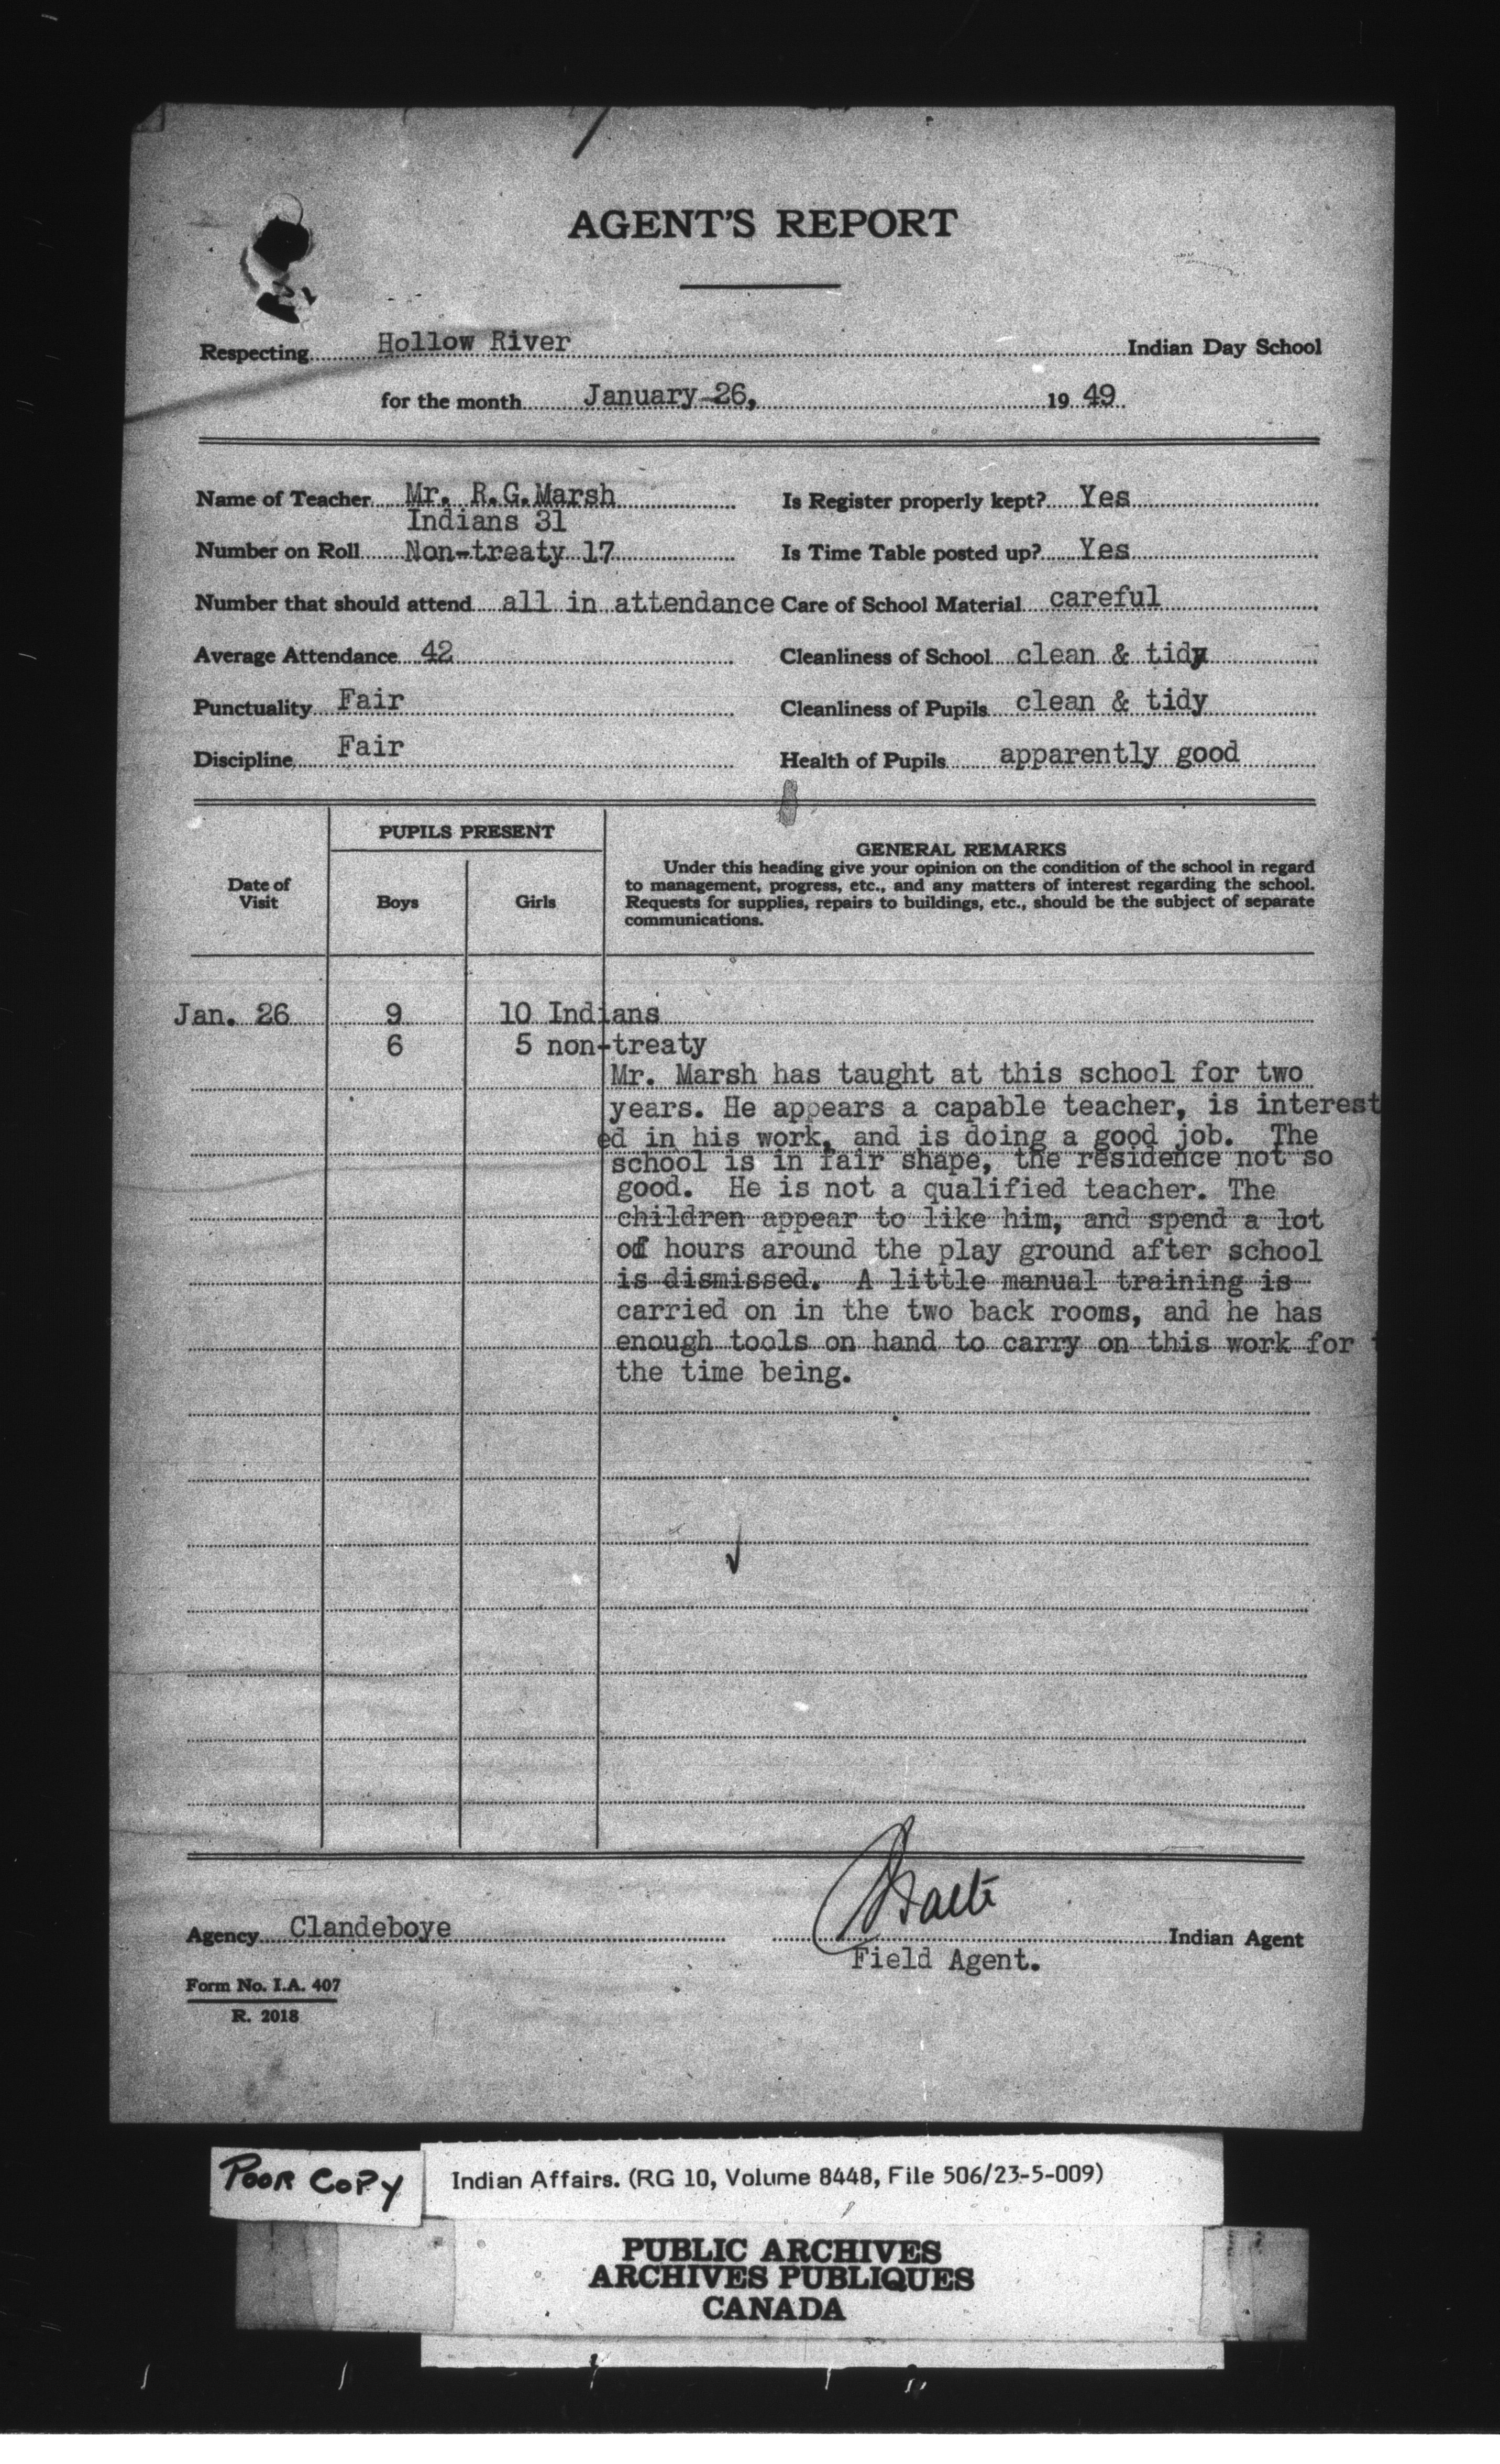 AGENT'S REPORT
Respecting Hollow River Indian Day School
for the month January 26, 19 49
Name of Teacher Mr. R.G.Marsh Is Register properly kept? Yes
Indians 31
Number on Roll Non-treaty 17 Is Time Table posted up? Yes
Number that should attend all in attendance Care of School Material careful
Average Attendance 42 Cleanliness of School clean & tidy
Punctuality Fair Cleanliness of Pupils clean & tidy
Discipline Fair Health of Pupils apparently good
PUPILS PRESENT
Date of Visit Boys Girls
GENERAL REMARKS
Under this heading give your opinion on the condition of the school in regard
to management, progress, etc., and any matters of interest regarding the school.
Requests for supplies, repairs to buildings, etc., should be the subject of separate
communications.
Jan. 26 9 10 Indians
6 5 non-treaty
Mr. Marsh has taught at this school for two
years. He appears a capable teacher, is interest
ed in his work, and is doing a good job. The
school is in fair shape, the residence not so
good. He is not a qualified teacher. The
children appear to like him, and spend a lot
of hours around the play ground after school
is dismissed. A little manual training is
carried on in the two back rooms, and he has
enough tools on hand to carry on this work for t
the time being.
Agency Clandeboye Indian Agent
Field Agent.
Form No. I.A. 407
R. 2018
POOR COPY
Indian Affairs. (RG 10, Volume 8448, File 506/23-5-009)
PUBLIC ARCHIVES
ARCHIVES PUBLIQUES
CANADA